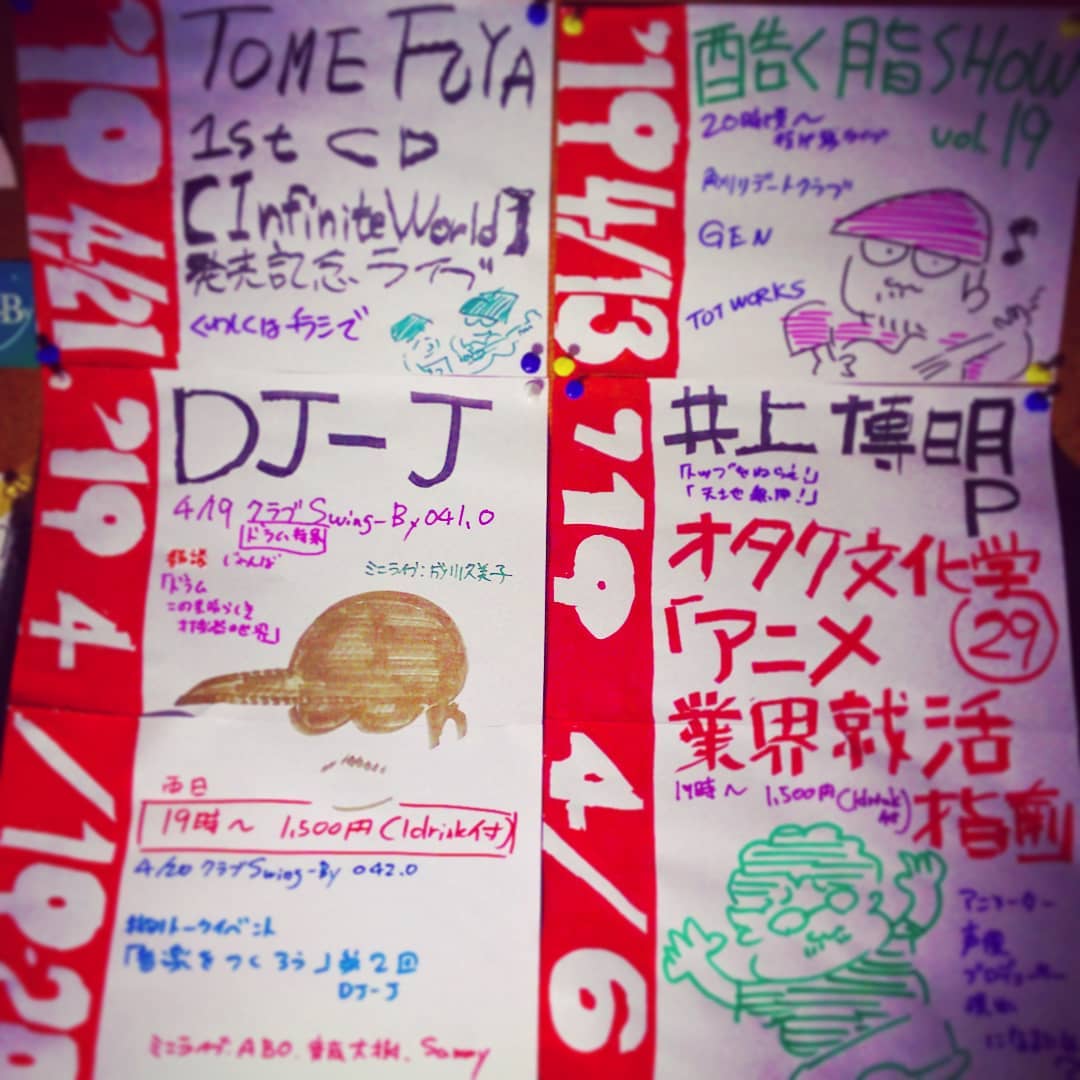 '19 4/21
TOME FUYA
1st CD
【InfiniteWorld】
発売記念ライブ
くわしくはチラシで
'19 4/13
酷く脂SHOW
vol.19
20時頃〜
GEN
TOT WORKS
'19 4/19.20
DJ-J
4/19 クラブSwing-By 041.0
ドラム特集
「ドラム
ミニライブ:成川久美子
両日
19時〜 1,500円(1drink付)
4/20 クラブSwing-By 042.0
特別トークイベント
「音楽をつくろう」第2回
DJ-J
ミニライブ:ABO. 大樹. Sammy
'19 4/6
井上博明
P
「トップをねらえ!」
「天地無用!」
オタク文化学
29
「アニメ
業界就活
指南」
19時〜 1,500円(1drink付)
アニメーター
声優
プロデューサー